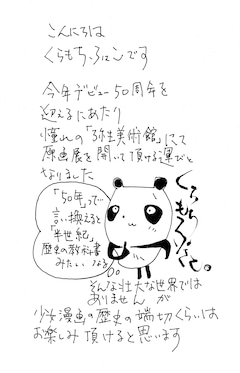 こんにちは
くらもちふさこです
今年デビュー50周年を
迎えるにあたり
憧れの「弥生美術館」にて
原画展を開いて頂ける運びと
なりました
「50年」って
言い換えると
「半世紀」
歴史の教科書
みたい…なる
くらもちふさこ。
そんな壮大な世界では
ありませんが
少女漫画の歴史の端切くらいは
お楽しみ頂けると思います